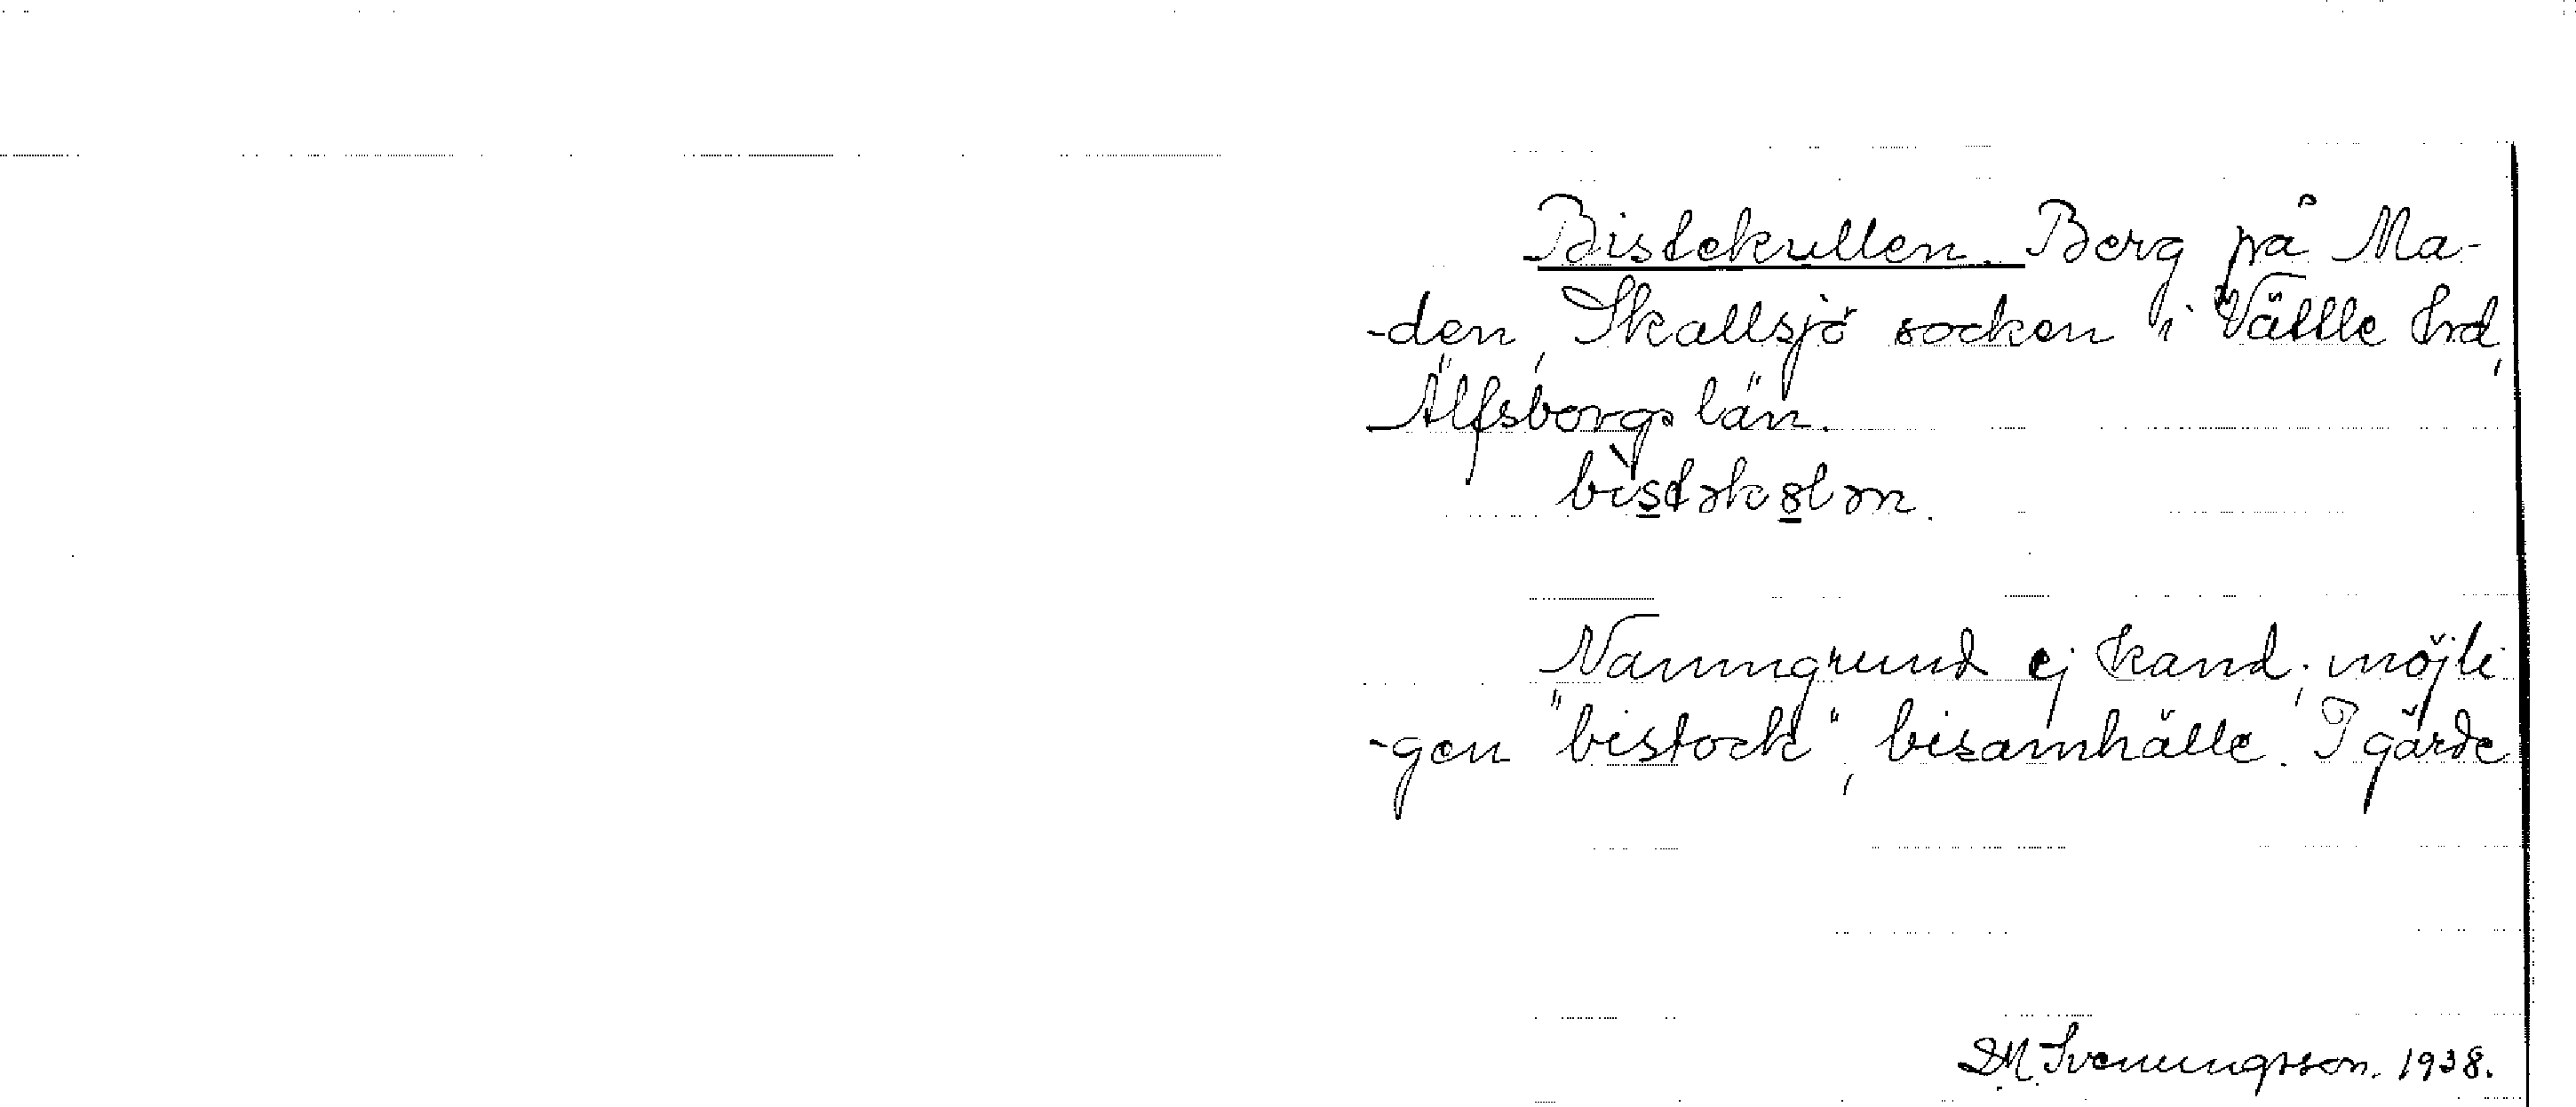 Bistekullen. Berg på Ma-
-den, Skallsjö socken i Vättle hrd,
Älfsborgs län.
bìstəkɷlən.
Namngrund ej känd; möjli
-gen "bistock", bisamhälle. I gärde
D.M. Svenningsson. 1938.